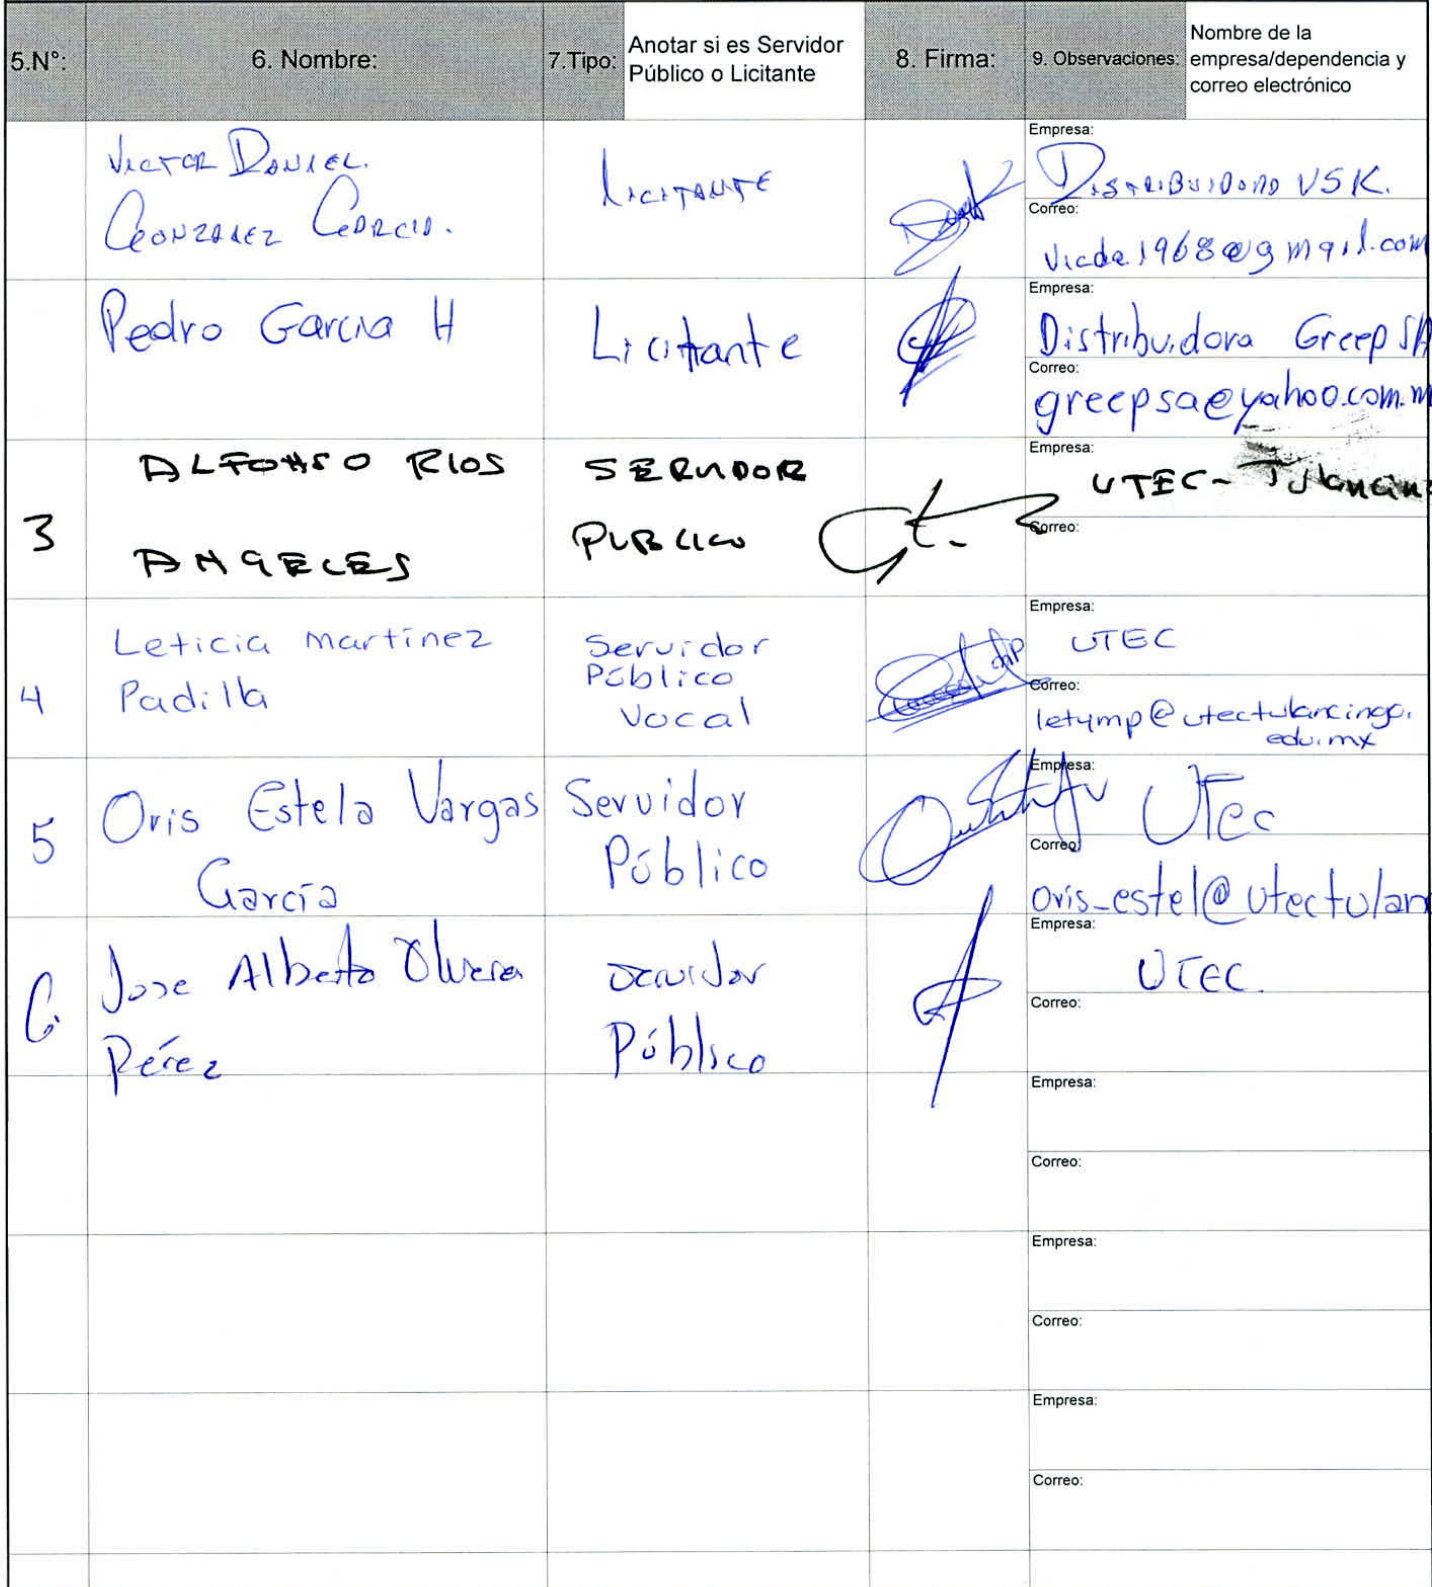 5.N°: 6. Nombre: 7.Tipo: Anotar si es Servidor Público o Licitante 8. Firma: 9. Observaciones: Nombre de la empresa/dependencia y correo electrónico
Victor Daniel.
Gonzalez Garcia.
Licitante
Empresa:
Distribuidora VSK.
Correo:
vicda1968@gmail.com
Pedro Garcia H
Licitante
Empresa:
Distribuidora Greep SA
Correo:
greepsa@yahoo.com.m
3
ALFONSO RIOS
ANGELES
SERVIDOR
PUBLICO
Empresa:
UTEC- Tulancin
Correo:
4
Leticia martínez
Padilla
Servidor
Público
Vocal
Empresa:
UTEC
Correo:
letymp@utectulancingo.
edu.mx
5
Oris Estela Vargas
García
Servidor
Público
Empresa:
UTec
Correo:
oris_estel@utectulan
6.
Jose Alberto Olvera
Pérez
Servidor
Público
Empresa:
UTEC.
Correo:
Empresa:
Correo:
Empresa:
Correo:
Empresa:
Correo: